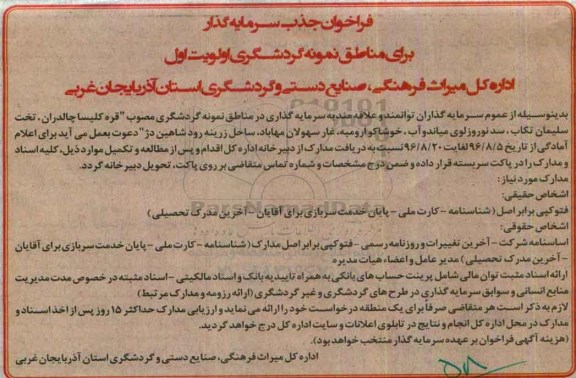 فراخوان جذب سرمایه گذار
برای مناطق نمونه گردشگری اولویت اول
اداره کل میراث فرهنگی، صنایع دستی و گردشگری استان آذربایجان غربی
بدینوسیله از عموم سرمایه گذاران توانمند و علاقمند به سرمایه گذاری در مناطق نمونه گردشگری مصوب "قره کلیسا چالدران، تخت
سلیمان تکاب، سد نوروزلوی میاندوآب، خوشاکو ارومیه، غار سهولان مهاباد، ساحل زرینه رود شاهین دژ" دعوت بعمل می آید برای اعلام
آمادگی از تاریخ ۹۶/۸/۵ لغایت ۹۶/۸/۲۰ نسبت به دریافت مدارک از دبیرخانه اداره کل اقدام و پس از مطالعه و تکمیل موارد ذیل، کلیه اسناد
و مدارک را در پاکت سربسته قرار داده و ضمن درج مشخصات و شماره تماس متقاضی بر روی پاکت، تحویل دبیرخانه گردد.
مدارک مورد نیاز:
اشخاص حقیقی:
فتوکپی برابر اصل (شناسنامه - کارت ملی - پایان خدمت سربازی برای آقایان - آخرین مدرک تحصیلی)
اشخاص حقوقی:
اساسنامه شرکت - آخرین تغییرات و روزنامه رسمی - فتوکپی برابر اصل مدارک (شناسنامه - کارت ملی - پایان خدمت سربازی برای آقایان
- آخرین مدرک تحصیلی) مدیر عامل و اعضاء هیات مدیره
ارائه اسناد مثبت توان مالی شامل پرینت حساب های بانکی به همراه تاییدیه بانک و اسناد مالکیتی - اسناد مثبته در خصوص مدت مدیریت
منابع انسانی و سوابق سرمایه گذاری در طرح های گردشگری و غیر گردشگری (ارائه رزومه و مدارک مرتبط)
لازم به ذکر است هر متقاضی صرفاً برای یک منطقه درخواست خود را ارائه می نماید و ارزیابی مدارک حداکثر ۱۵ روز پس از اخذ اسناد و
مدارک در محل اداره کل انجام و نتایج در تابلوی اعلانات و سایت اداره کل درج خواهد گردید.
(هزینه آگهی فراخوان بر عهده سرمایه گذار منتخب خواهد بود).
اداره کل میراث فرهنگی، صنایع دستی و گردشگری استان آذربایجان غربی